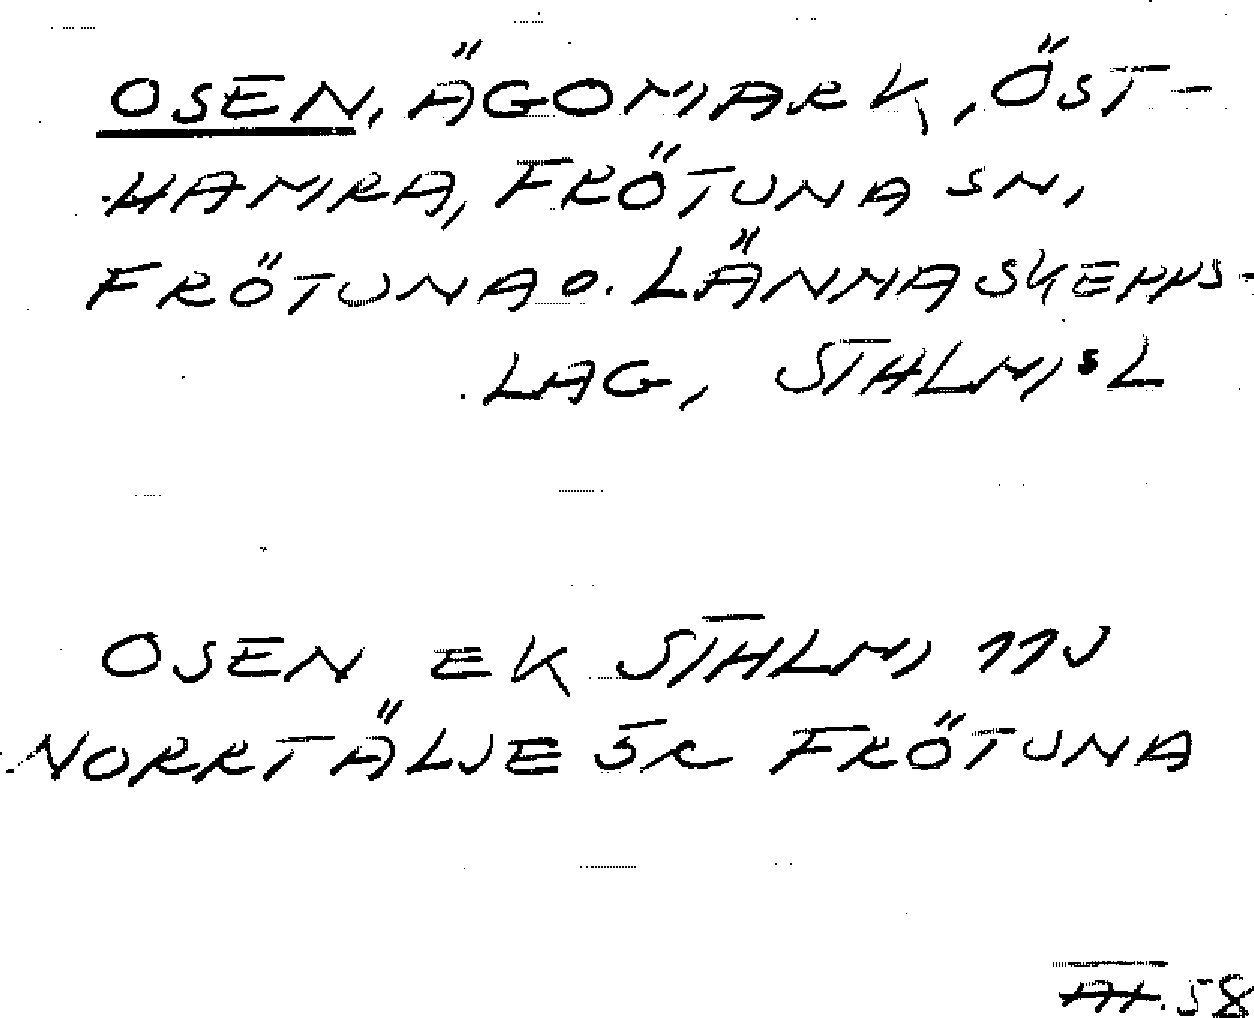 OSEN, ÄGOMARK, ÖST-
HAMRA, FRÖTUNA SN,
FRÖTUNA O. LÄNNA SKEPPS-
LAG, STHLMS L
OSEN EK STHLM 11J
NORRTÄLJE 5c FRÖTUNA
58